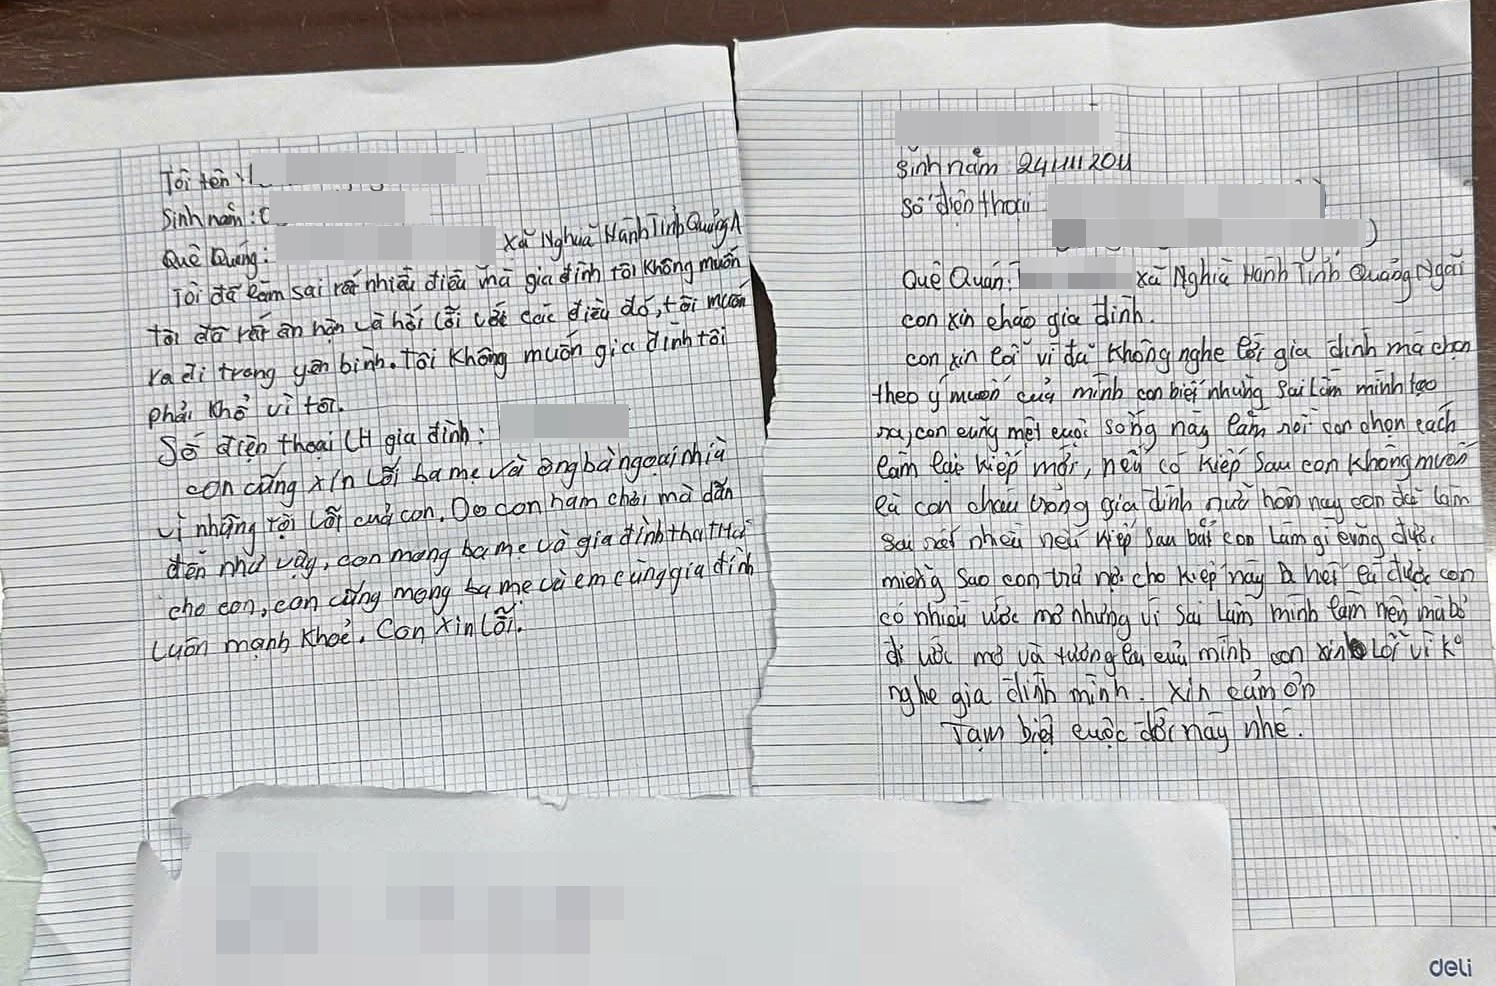 Tôi tên:
Sinh năm:
Quê Quáng: xã Nghiã Hành Tỉnh Quảng
Tôi đã làm sai rất nhiều điều mà gia đình tôi không muốn
tôi đã rất ân hận và hối lỗi với các điều đó, tôi muốn
ra đi trong yên bình. Tôi không muốn gia đình tôi
phải khổ vì tôi.
Số điện thoại LH gia đình:
con cũng xin lỗi ba mẹ và ông bà ngoại nhiều
vì những tội lỗi của con. Do con ham chơi mà dẫn
đến như vậy, con mong ba mẹ và gia đình tha thứ
cho con, con cũng mong ba mẹ và em cùng gia đình
luôn mạnh khoẻ. Con xin lỗi.
Sinh năm 2011
số điện thoại
Quê Quán: xã Nghiã Hành Tỉnh Quảng Ngãi
con xin chào gia đình.
con xin lỗi vì đã không nghe lời gia đình mà chọn
theo ý muốn của mình con biết những sai lầm mình tạo
ra, con cũng mệt cuộc sống này lắm rồi con chọn cách
làm lại kiếp mới, nếu có kiếp sau con không muốn
là con cháu trong gia đình nữa hôm nay con đã làm
sai rất nhiều nếu kiếp sau bắt con làm gì cũng được
miễng sao con trả nợ cho kiếp này là được con
có nhiều ước mơ nhưng vì sai lầm mình làm nên mà bỏ
đi ước mơ và tương lai của mình con xin lỗi vì ko
nghe gia đình mình. xin cảm ơn
Tạm biệt cuộc đời này nhé.
deli